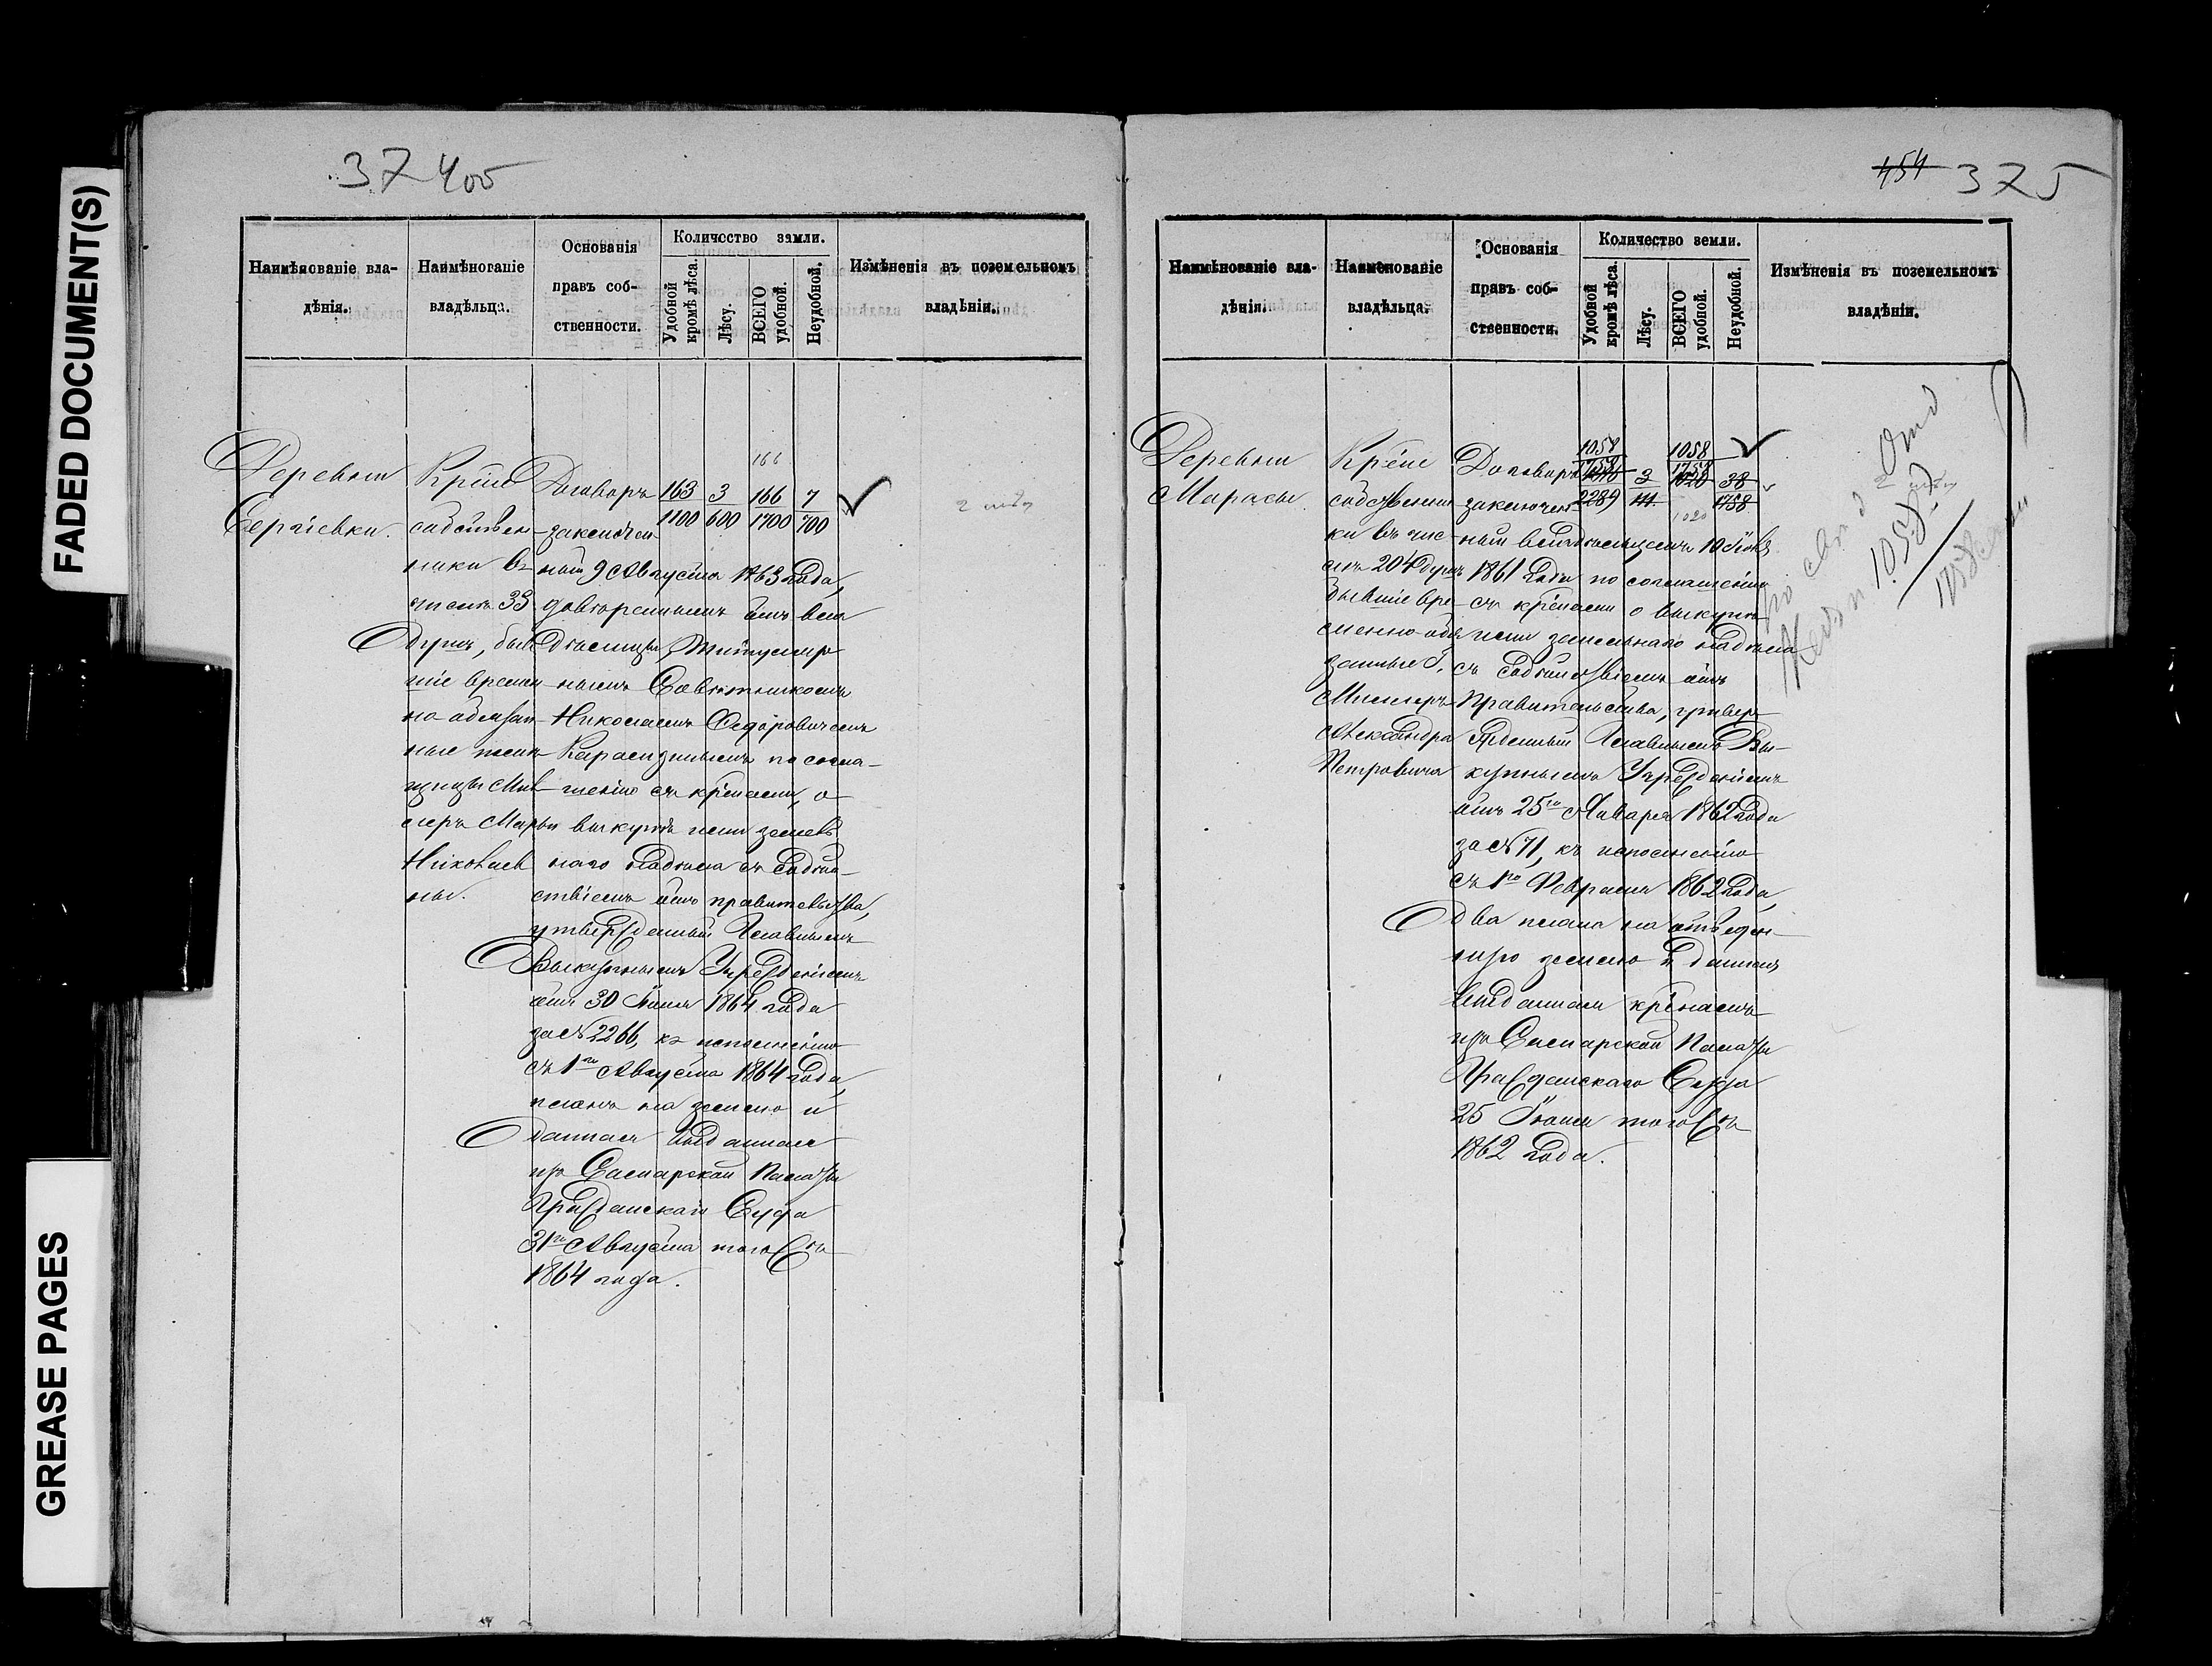 FADED DOCUMENT(S)
GREASE PAGES
374 об
Наимѣнованіе вла-
дѣнія.
Наимѣнованіе
владѣльца.
Основанія
правъ соб-
ственности.
Количество земли.
Удобной
кромѣ лѣса.
Лѣсу.
ВСЕГО
удобной.
Неудобной.
Измѣненія въ поземельномъ
владѣніи.
Деревни
Сергіевки.
Крѣпе
собствен-
ники въ
числѣ 33
душъ, быв
шіе времен-
но обязан-
ные помѣ-
щицы Мил-
леръ Марьи
Николаев
ны.
Договоръ
заключен
ный 9 Августа 1863 года,
довѣреннымъ отъ вла
дѣлицы, Титуляр
нымъ Совѣтникомъ
Николаемъ Федоровичемъ
Карамзинымъ по согла-
шенію съ крѣпами, о
выкупѣ ими земель
наго надѣла съ содѣй-
ствіемъ отъ правительства,
утвержденный Главнымъ
Выкупнымъ Учрежденіемъ
отъ 30 Іюля 1864 года
за № 2266, къ исполненію
съ 1го Августа 1864 года,
планъ на землю и
данная выданная
изъ Самарской Палаты
Гражданскаго Суда
31го Августа того же
1864 года.
166
163 3 166 7
1100 600 1700 700
454 375
Наимѣнованіе вла-
дѣнія.
Наимѣнованіе
владѣльца.
Основанія
правъ соб-
ственности.
Количество земли.
Удобной
кромѣ лѣса.
Лѣсу.
ВСЕГО
удобной.
Неудобной.
Измѣненія въ поземельномъ
владѣніи.
Деревни
Марасы.
Крѣпе
собственни
ки въ чис-
лѣ 204 душъ
бывшіе вре-
менно-обя
занные Г.
Миллеръ
Александра
Петровича
Договоръ
заключен
ный владѣльцемъ 10 Іюня
1861 года по соглашенію
съ крѣпами о выкупѣ
ими земельнаго надѣла
съ содѣйствіемъ отъ
Правительства, утвер-
жденный Главнымъ Вы-
купнымъ Учрежденіемъ
отъ 25го Января 1862 года
за № 71, къ исполненію
съ 1го Февраля 1862 года,
два плана на отведен-
ную землю и данная
выданная крѣпамъ
изъ Самарской Палаты
Гражданскаго Суда
25 Іюля того же
1862 года.
1058 1058
1758 3 1758 38
2289 1758
1020
1058